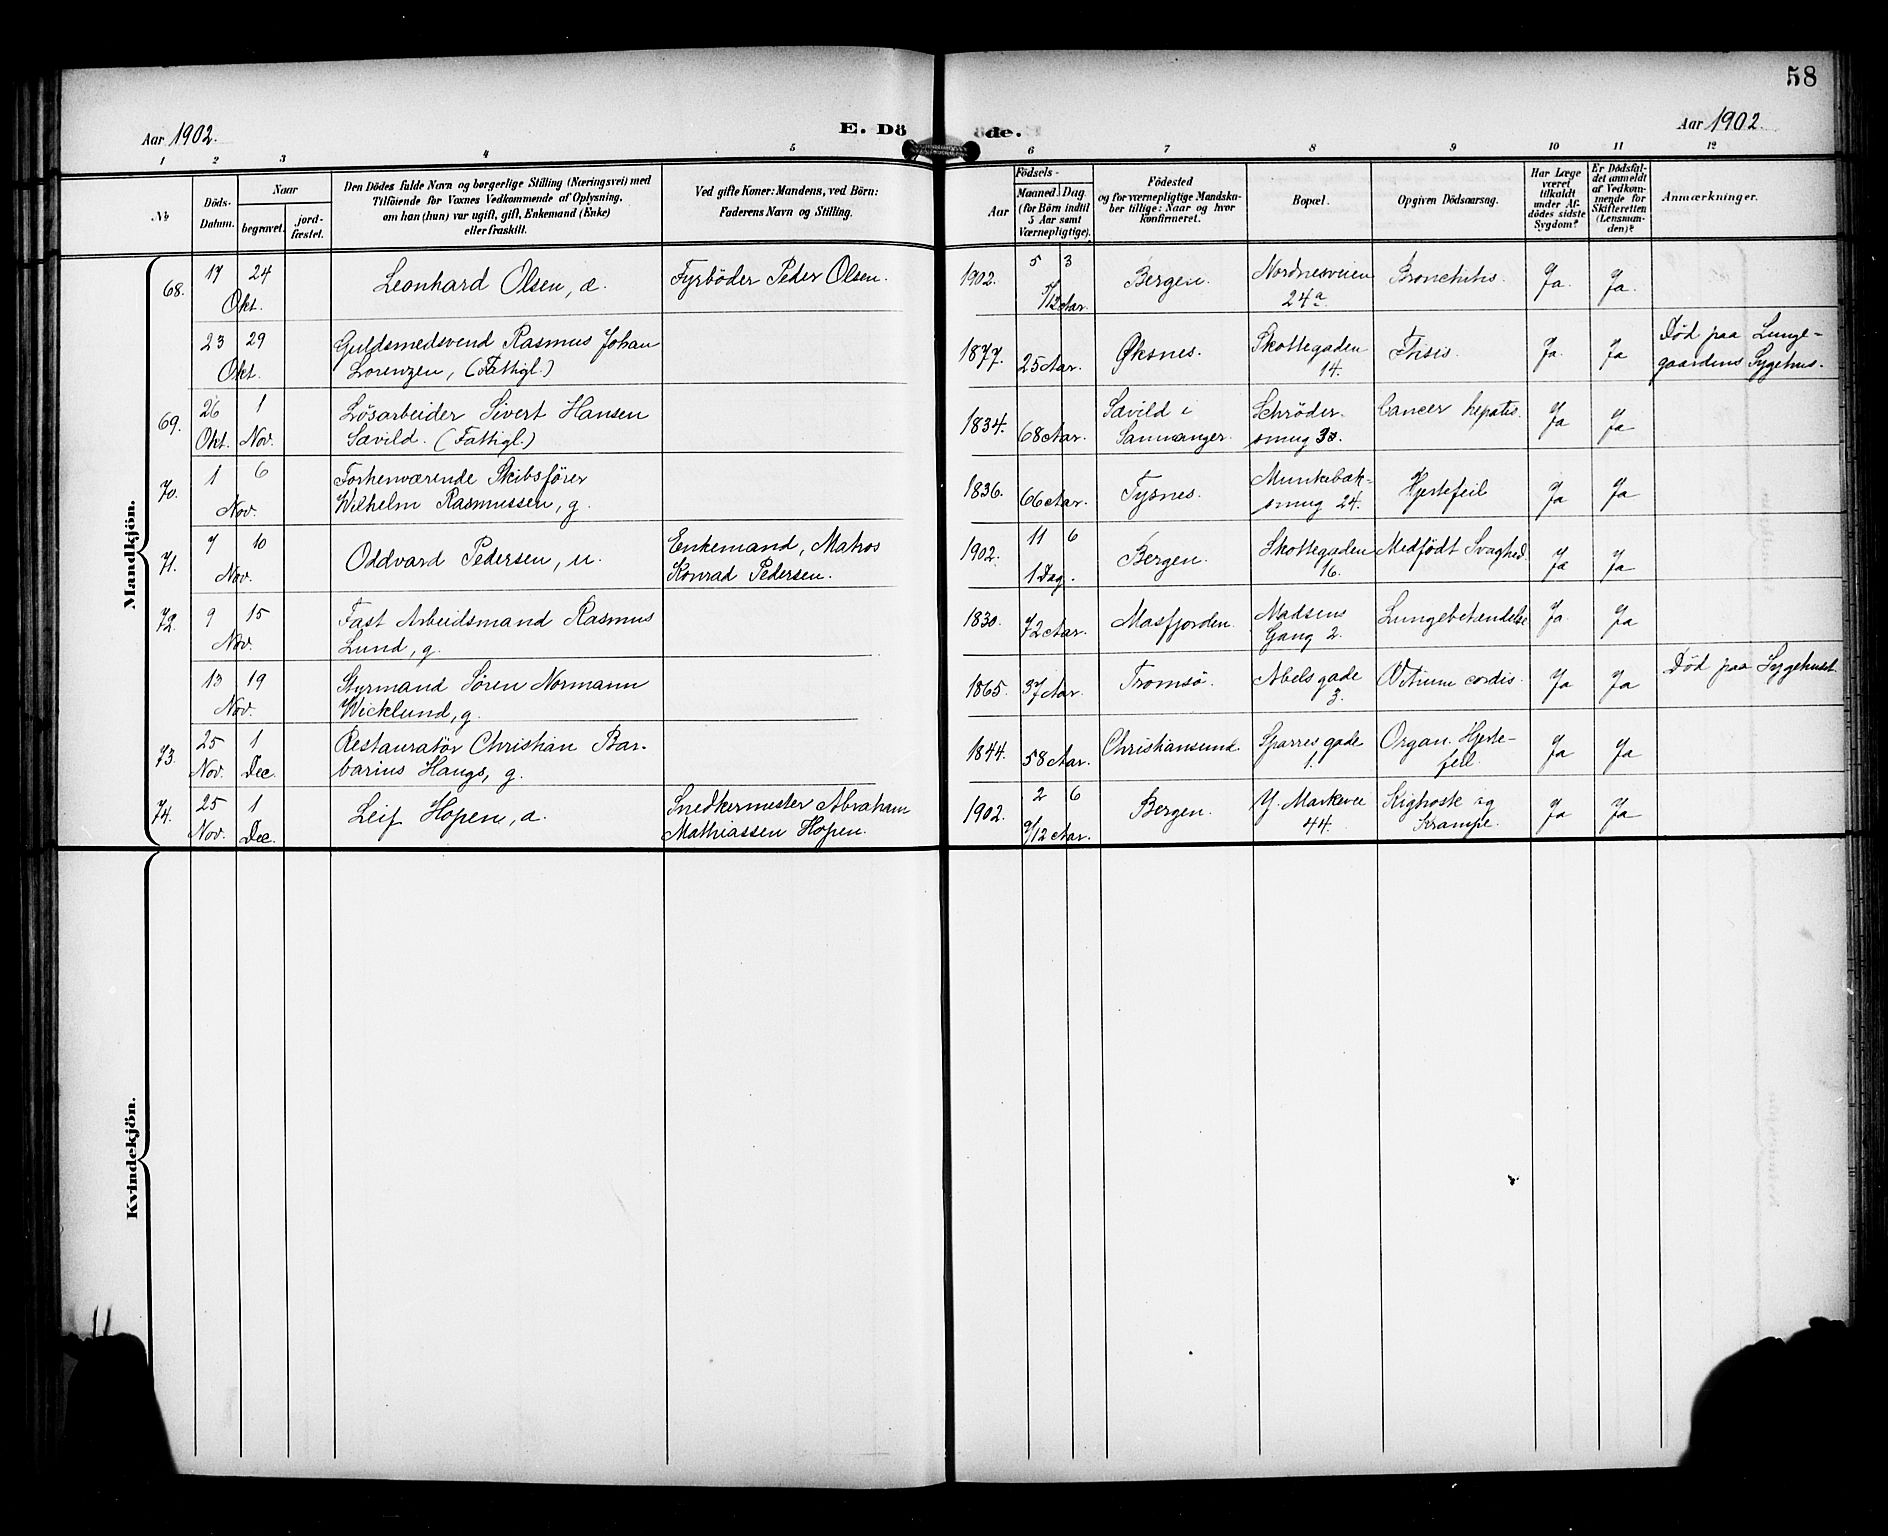 58
Aar 1902.
E. Döde.
Aar 1902.
1 2 3 4 5 6 7 8 9 10 11 12
No
Döds-Datum.
Naar
begravet.
jord-fæstet.
Den Dödes fulde Navn og borgerlige Stilling (Næringsvei) med
Tilföiende for Voxnes Vedkommende af Oplysning,
om han (hun) var ugift, gift, Enkemand (Enke)
eller fraskilt.
Ved gifte Koner: Mandens, ved Börn:
Faderens Navn og Stilling.
Födsels-
Aar
Maaned. Dag
(for Börn indtil
5 Aar samt
Værnepligtige).
Födested
og for værnepligtige Mandska-
ber tillige: Naar og hvor
konfirmeret.
Bopæl.
Opgiven Dödsaarsag.
Har Læge
været
tilkaldt
under Af-
dödes sidste
Sygdom?
Er Dödsfal-
det anmeldt
af Vedkom-
mende for
Skifteretten
(Lensman-
den)?
Anmærkninger.
Mandkjön.
68. 17 Okt. 24 Leonhard Olsen, æ. Fyrböder Peder Olsen. 1902. 5 3 5/12 Aar. Bergen. Nordnesveien 24a. Bronchitis. Ja. Ja.
23 Okt. 29 Guldsmedsvend Rasmus Johan
Lorenzen, (Fattigl.) 1877. 25 Aar. Øksnes. Skottegaden 14. Ftisis. Ja. Ja Død paa Lunge-
gaardens Sygehus.
69. 26 Okt. 1 Nov. Lösarbeider Sivert Hansen
Sævild. (Fattigl.) 1834. 68 Aar. Sævild i
Samnanger. Schrøder-
smug 30. Cancer hepatis. Ja Ja
70. 1 Nov. 6 Forhenværende Skibsfører
Wilhelm Rasmussen, g. 1836. 66 Aar. Tysnes. Munkebæk-
smug 24. Hjertefeil Ja Ja
71. 7 Nov. 10 Oddvard Pedersen, u. Enkemand, Matros
Konrad Pedersen. 1902. 11 6 1 Dag. Bergen. Skottegaden 16. Medfödt Svaghed. Ja Ja
72. 9 Nov. 15 Fast Arbeidsmand Rasmus
Lund, g. 1830. 72 Aar. Masfjorden. Madsens
Gang 2. Lungebetændelse Ja. Ja
13 Nov. 19 Styrmand Søren Normann
Wicklund, g. 1865. 37 Aar. Tromsø. Abels gade
3. Vitium cordis. Ja Ja Død paa Sygehuset.
73. 25 Nov. 1 Dec. Restauratør Christian Bar-
barius Haugs, g. 1844. 58 Aar. Christiansund. Sparres gade
1. Organ. Hjerte-
feil. Ja Ja
74. 25 Nov. 1 Dec. Leif Hopen, æ. Snedkermester Abraham
Mathiassen Hopen. 1902. 2 6 9/12 Aar. Bergen. Y. Markevei
44. Kighoste og
Krampe. Ja Ja
Kvindekjön.